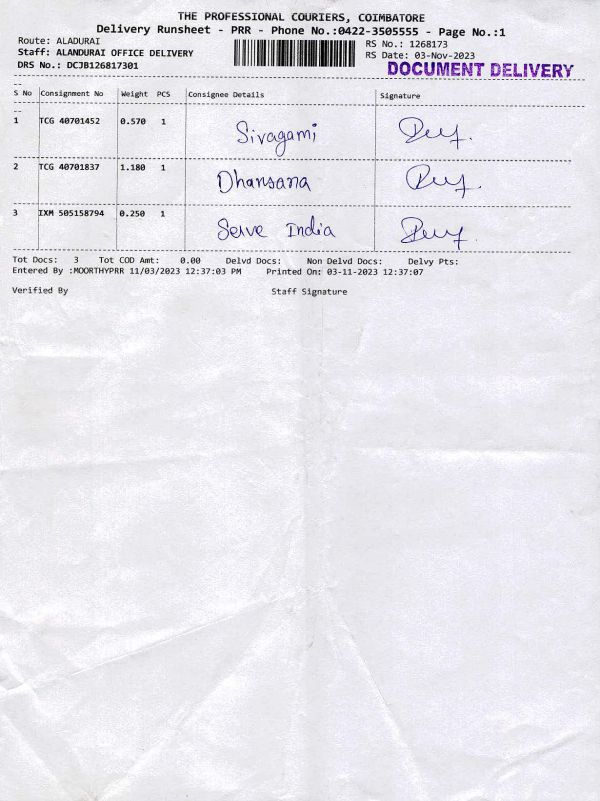 THE PROFESSIONAL COURIERS, COIMBATORE
Delivery Runsheet - PRR - Phone No.:0422-3505555 - Page No.:1
Route: ALADURAI RS No.: 1268173
Staff: ALANDURAI OFFICE DELIVERY RS Date: 03-Nov-2023
DRS No.: DCJB126817301 DOCUMENT DELIVERY
S No Consignment No Weight PCS Consignee Details Signature
1 TCG 40701452 0.570 1 Sivagami
2 TCG 40701837 1.180 1 Dhansana
3 IXM 505158794 0.250 1 Serve India
Tot Docs: 3 Tot COD Amt: 0.00 Delvd Docs: Non Delvd Docs: Delvy Pts:
Entered By :MOORTHYPRR 11/03/2023 12:37:03 PM Printed On: 03-11-2023 12:37:07
Verified By Staff Signature